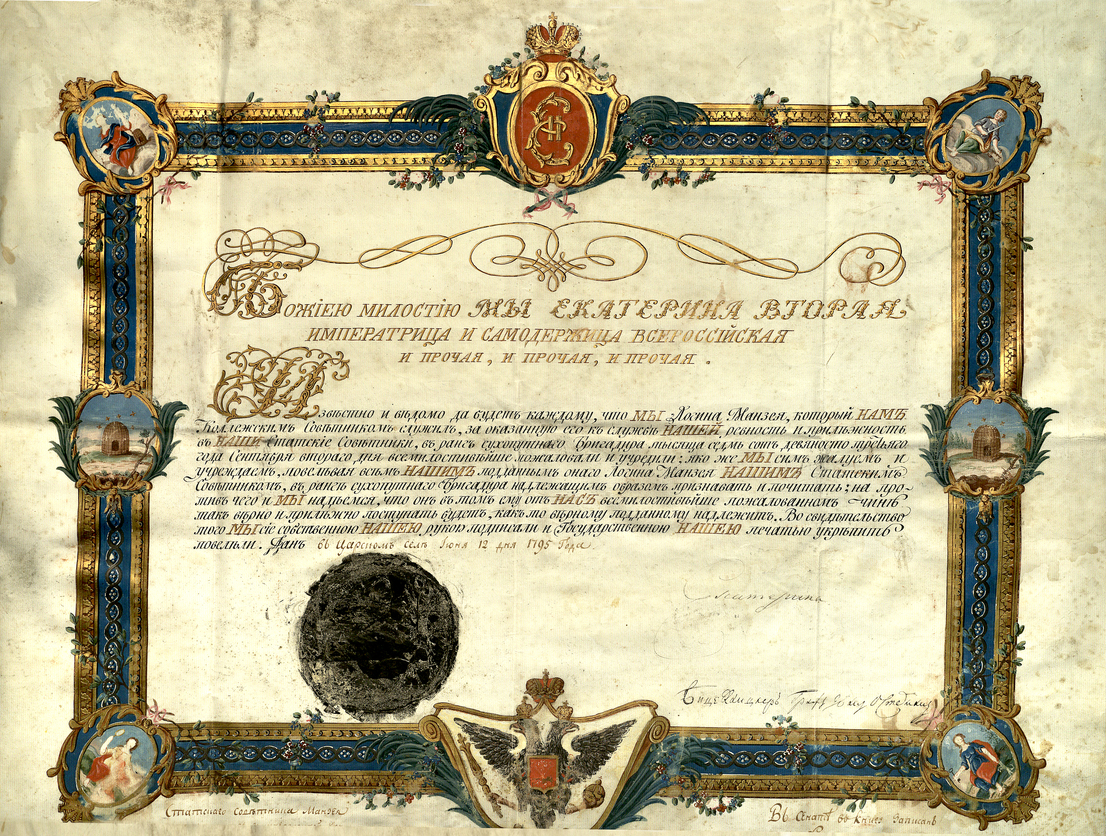 БОЖІЕЮ МИЛОСТІЮ МЫ ЕКАТЕРИНА ВТОРАЯ
ИМПЕРАТРИЦА И САМОДЕРЖИЦА ВСЕРОССІЙСКАЯ
И ПРОЧАЯ, И ПРОЧАЯ, И ПРОЧАЯ.
Извѣстно и вѣдомо да будетъ каждому, что МЫ Іосипа Манзея, который НАМЪ
Коллежскимъ Совѣтникомъ служилъ, за оказанную его къ службѣ НАШЕЙ ревность и прилѣжность
въ НАШИ Статскіе Совѣтники, въ рангѣ сухопутнаго Бригадира тысяща седмь сотъ девяносто третьяго
года Сентября втораго дня всемилостивѣйше пожаловали и учредили; яко же МЫ симъ жалуемъ и
учреждаемъ, повелѣвая всѣмъ НАШИМЪ подданнымъ онаго Іосипа Манзея НАШИМЪ Статскимъ
Совѣтникомъ, въ рангѣ сухопутнаго Бригадира надлежащимъ образомъ признавать и почитать: на про-
тивъ чего и МЫ надѣемся, что онъ въ томъ ему отъ НАСЪ всемилостивѣйше пожалованномъ чинѣ
такъ вѣрно и прилѣжно поступать будетъ, какъ то вѣрному подданному надлежитъ. Во свидѣтельство
того МЫ сіе собственною НАШЕЮ рукою подписали и Государственною НАШЕЮ печатью укрѣпить
повелѣли. Данъ въ Царскомъ Селѣ Іюня 12 дня 1795 Года.
Екатерина
Вице Канцлеръ Графъ Остерманъ
Статскаго Совѣтника Манзея
Въ Сенатѣ въ книгу записанъ